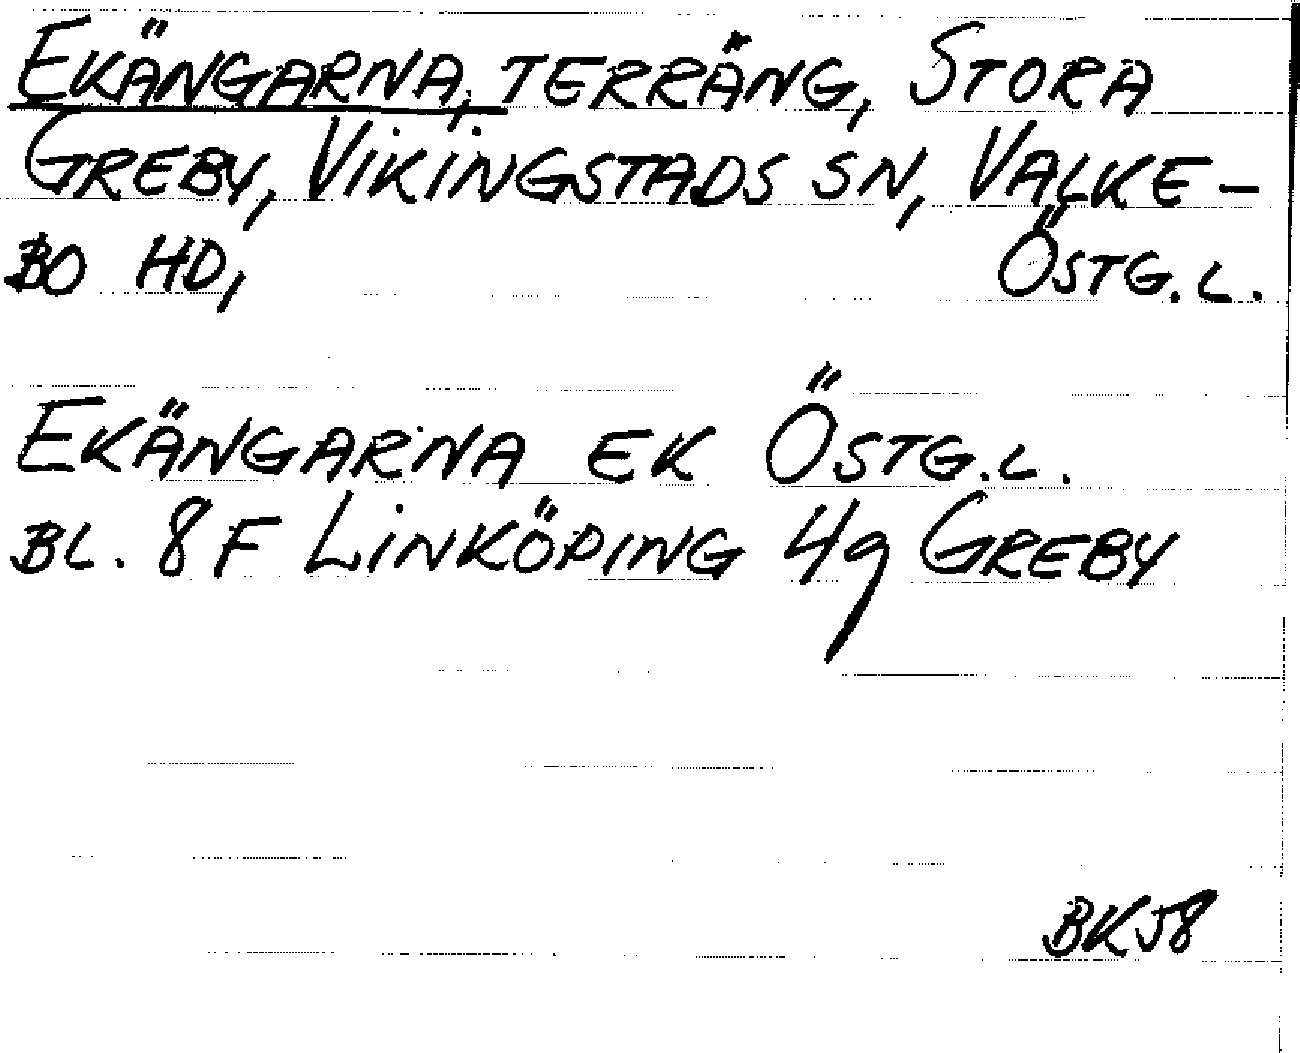 EKÄNGARNA, TERRÄNG, STORA
GREBY, VIKINGSTADS SN, VALKE-
BO HD, ÖSTG. L.
EKÄNGARNA EK ÖSTG. L.
BL. 8 F LINKÖPING 4g GREBY
BKJ8